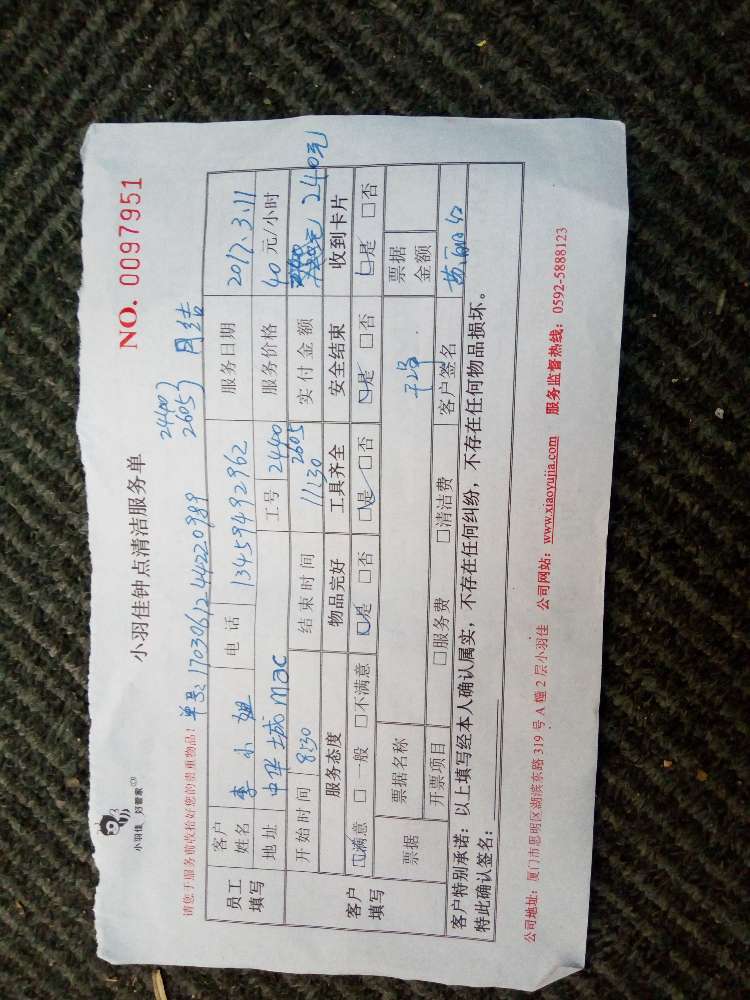 小羽佳 好管家
小羽佳钟点清洁服务单
NO. 0097951
请您于服务前收拾好您的贵重物品! 单号:17030612442220989
2440
2605 月结
员工填写 客户姓名 李小姐 电话 13459492962 服务日期 2017.3.11
地址 中华城mac 工号 2440 2605 服务价格 40元/小时
开始时间 8:30 结束时间 11:30 实付金额 240元
客户填写 服务态度 物品完好 工具齐全 安全结束 收到卡片
□满意 □一般 □不满意 □是 □否 □是 □否 □是 □否 □是 □否
票据 票据名称 票据金额
开票项目 □服务费 □清洁费 客户签名
客户特别承诺:以上填写经本人确认属实,不存在任何纠纷,不存在任何物品损坏。
特此确认签名:
公司地址:厦门市思明区湖滨东路 319 号 A 幢 2 层小羽佳 公司网站:www.xiaoyujia.com 服务监督热线:0592-5888123